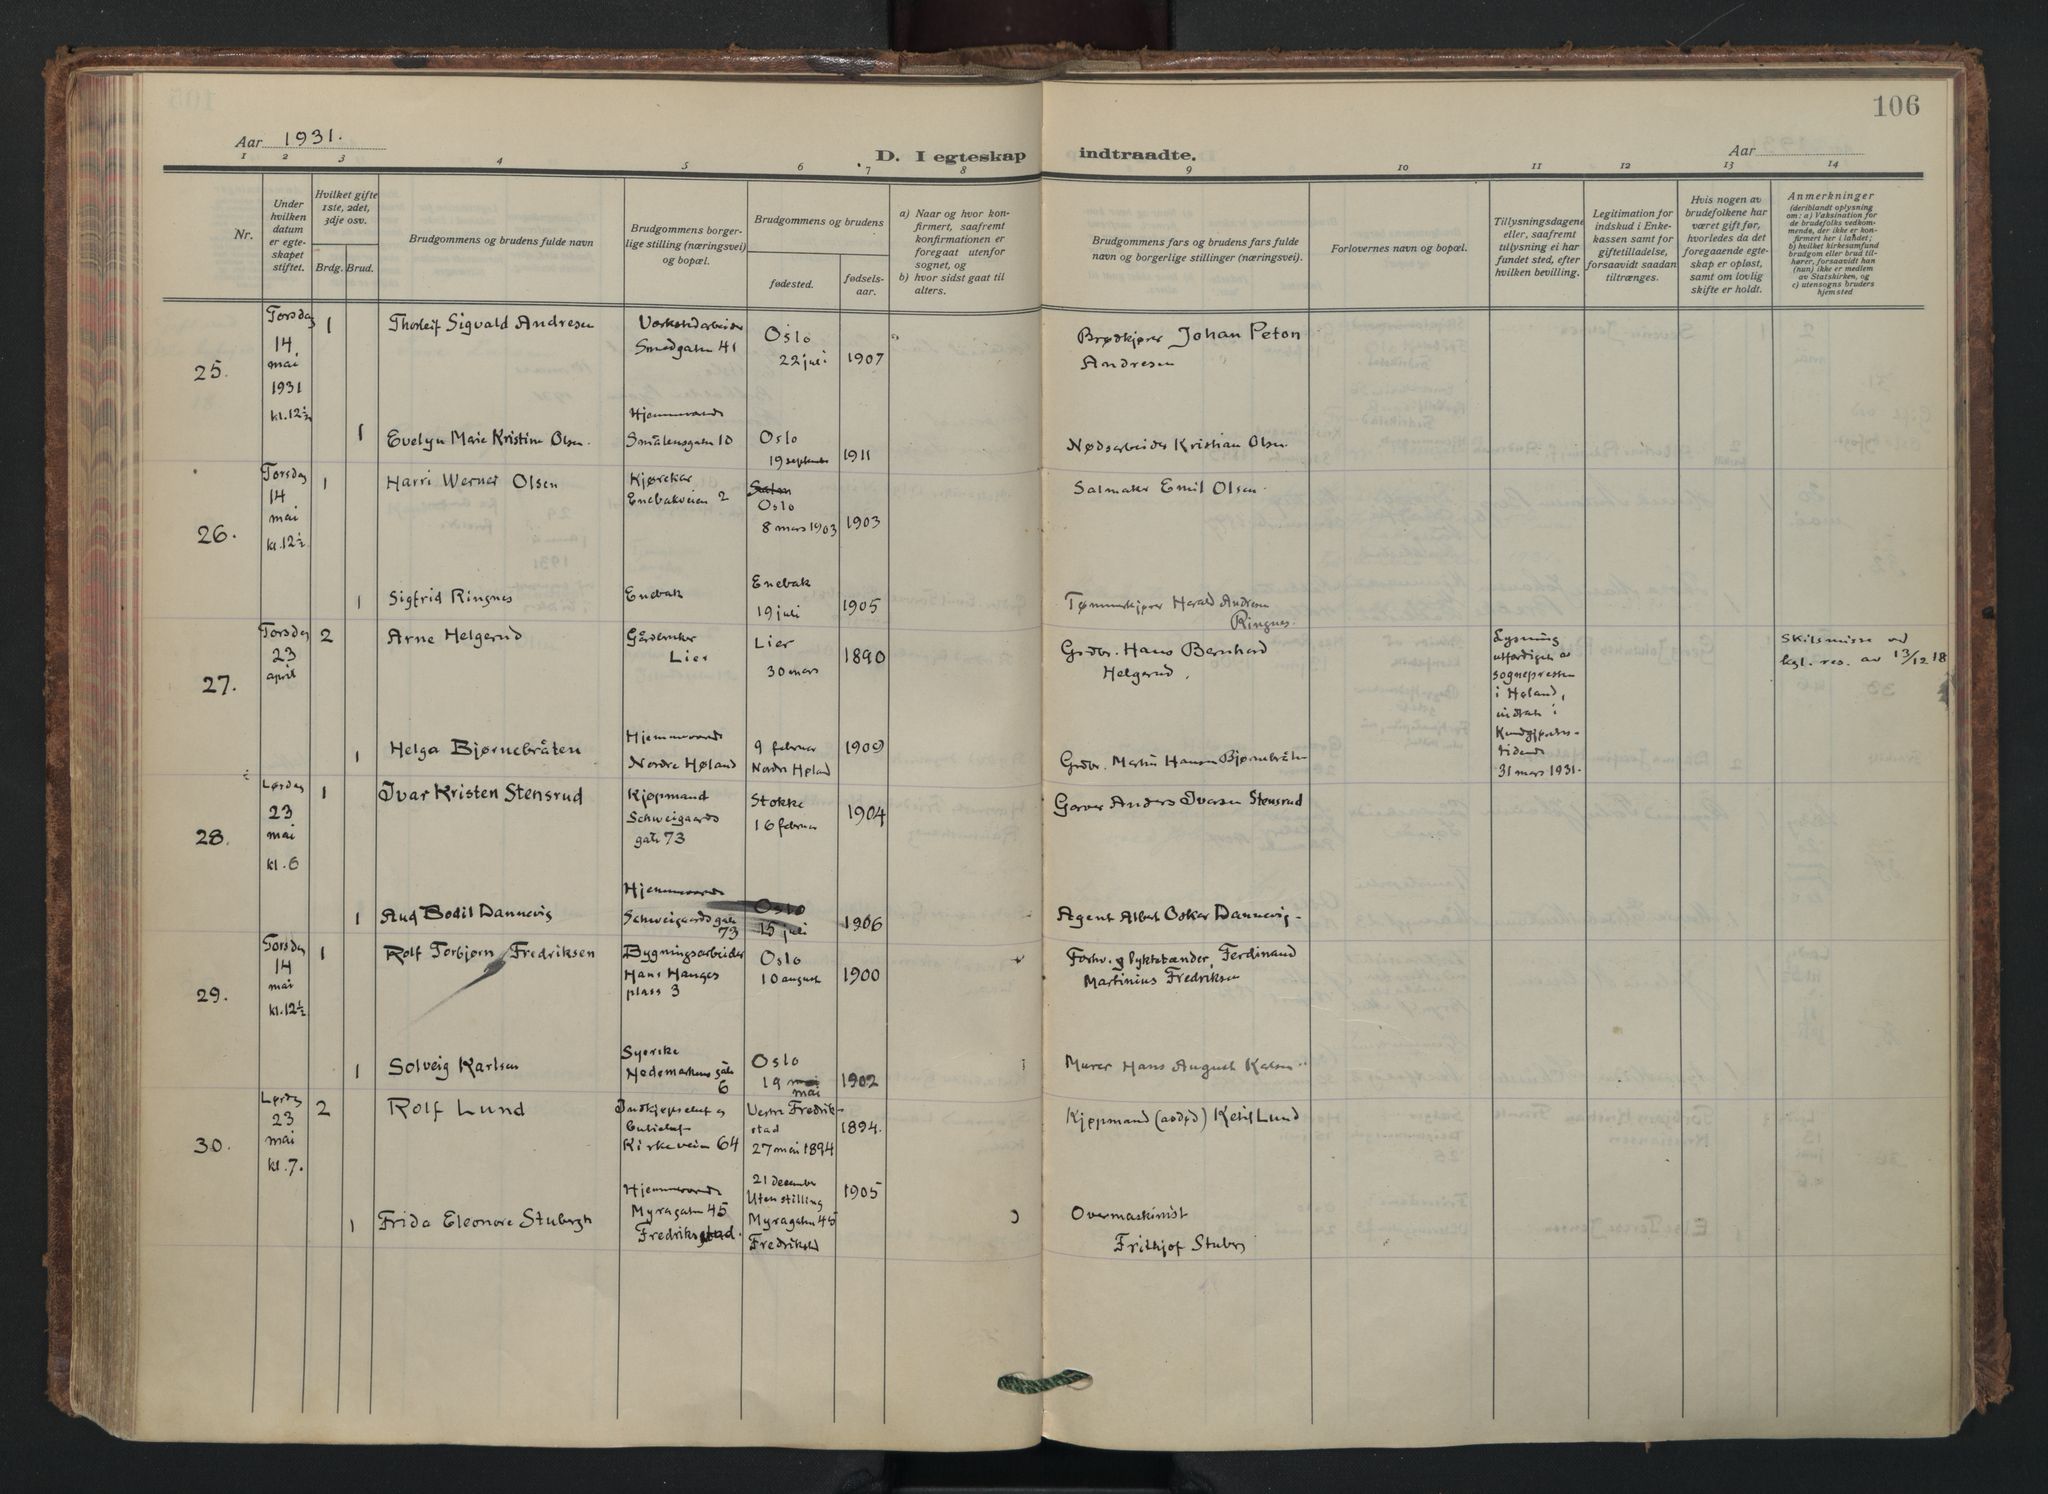 106
Aar 1931.
D. I egteskap indtraadte.
Aar
1 2 3 4 5 6 7 8 9 10 11 12 13 14
Nr.
Under hvilken datum er egteskapet stiftet.
Hvilket gifte 1ste, 2det, 3dje osv.
Brdg. Brud.
Brudgommens og brudens fulde navn
Brudgommens borgerlige stilling (næringsvei) og bopæl.
Brudgommens og brudens
fødested.
fødselsaar.
a) Naar og hvor konfirmert, saafremt konfirmationen er foregaat utenfor sognet, og
b) hvor sidst gaat til alters.
Brudgommens fars og brudens fars fulde navn og borgerlige stillinger (næringsvei).
Forlovernes navn og bopæl.
Tillysningsdagene eller, saafremt tillysning ei har fundet sted, efter hvilken bevilling.
Legitimation for indskud i Enkekassen samt for giftetilladelse, forsaavidt saadan tiltrænges.
Hvis nogen av brudefolkene har været gift før, hvorledes da det foregaaende egteskap er opløst, samt om lovlig skifte er holdt.
Anmerkninger
(deriblandt oplysning om: a) Vaksination for de brudefolks vedkommende, der ikke er konfirmert her i landet; b) hvilket kirkesamfund brudgom eller brud tilhører, forsaavidt han (hun) ikke er medlem av Statskirken, og c) utensogns bruders hjemsted
25.
Torsdag
14
mai
1931
kl. 12½
1
Thorleif Sigvald Andresen
Verkstedarbeider
Smedgaten 41
Oslo
22 juli
1907
Brødkjører Johan Peton
Andresen
1
Evelyn Marie Kristine Olsen.
Hjemmeværende
Smålensgaten 10
Oslo
19 september
1911
Nødsarbeider Kristian Olsen.
26.
Torsdag
14
mai
kl. 12½
1
Harri Werner Olsen
Kjørekar
Enebakveien 2
Oslo
8 mars 1903
1903
Salmaker Emil Olsen.
1
Sigfrid Ringnes
Enebak
Enebak
19 juli
1905
Tømmerkjører Harald Andresen
Ringnes.
27.
Torsdag
23
april
2
Arne Helgerud
Gårdbruker
Lier
Lier
30 mars
1890
Grdbr. Hans Bernhard
Helgerud.
Lysning
utfærdiget av
sognepresten
i Høland,
indtat i
Kundgjørelses-
tidende
31 mars 1931.
Skilsmisse ved
kgl. res. av 13/12 18
1
Helga Bjørnebråten
Hjemmeværende
Nordre Høland
9 februar
Nordre Høland
1909
Grdbr. Martin Hansen Bjørnebråten
28.
Lørdag
23
mai
kl. 6
1
Ivar Kristen Stensrud
Kjøpmand
Schweigaards
gate 73
Stokke
16 februar
1904
Garver Anders Iversen Stensrud
1
Aud Bodil Dannevig
Hjemmeværende
Schweigaards gate
73
Oslo
15 juli
1906
Agent Albert Oskar Dannevig.
29.
Torsdag
14
mai
kl. 12½
1
Rolf Torbjørn Fredriksen
Bygningsarbeider
Hans Hauges
plass 3
Oslo
10 august
1900
Forhv. lyktetænder, Ferdinand
Martinius Fredriksen
1
Solveig Karlsen
Syerske
Hedemarkens gate
6
Oslo
19 mai
mai
1902
Murer Hans August Kalsen
30.
Lørdag
23
mai
kl. 7.
2
Rolf Lund
Indkjøpschef og
Kirkeveien 64
Vestre Fredrik-
stad
27 mai 1894
1894.
Kjøpmand (avdød) Ketil Lund
1
Frida Eleonore Stubergh
Hjemmeværende
Myragaten 45
Fredrikstad.
21 december
Uten stilling
Myragaten 45
Fredrikstad
1905
Overmaskinist
Frithjof Stuberg